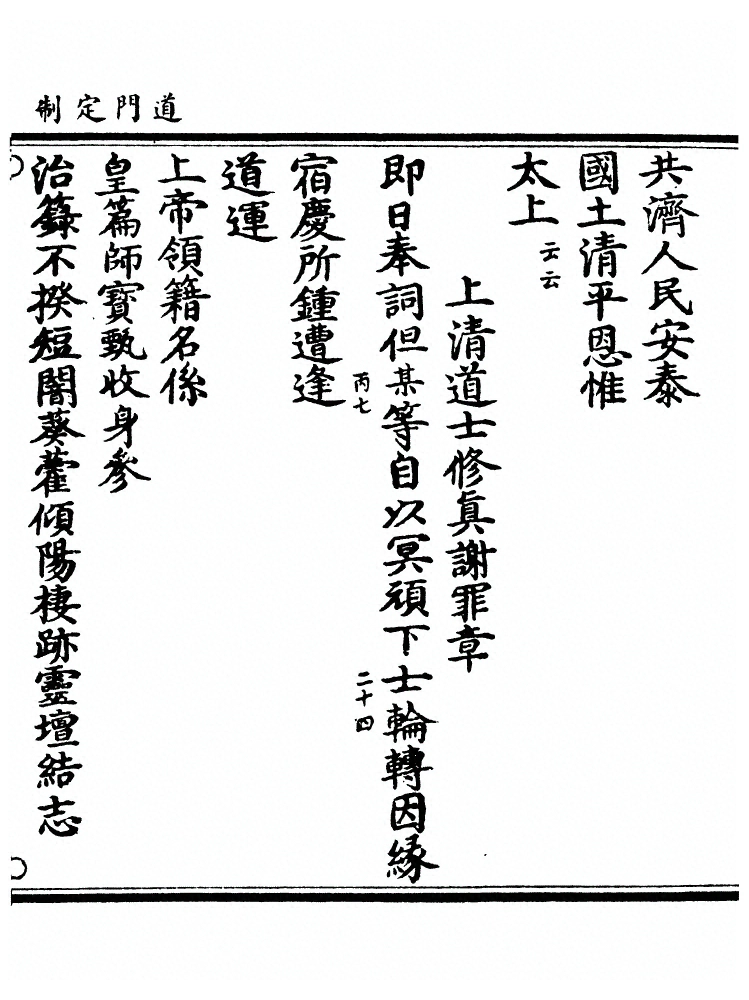 道門定制
共濟人民安泰
國土清平恩惟
太上云云
上清道士修真謝罪章
即日奉詞但某等自以冥頑下士輪轉因緣
丙七
二十四
宿慶所鍾遭逢
道運
上帝領籍名係
皇篇師寶甄收身參
治籙不揆短闇葵藿傾陽棲跡靈壇結志